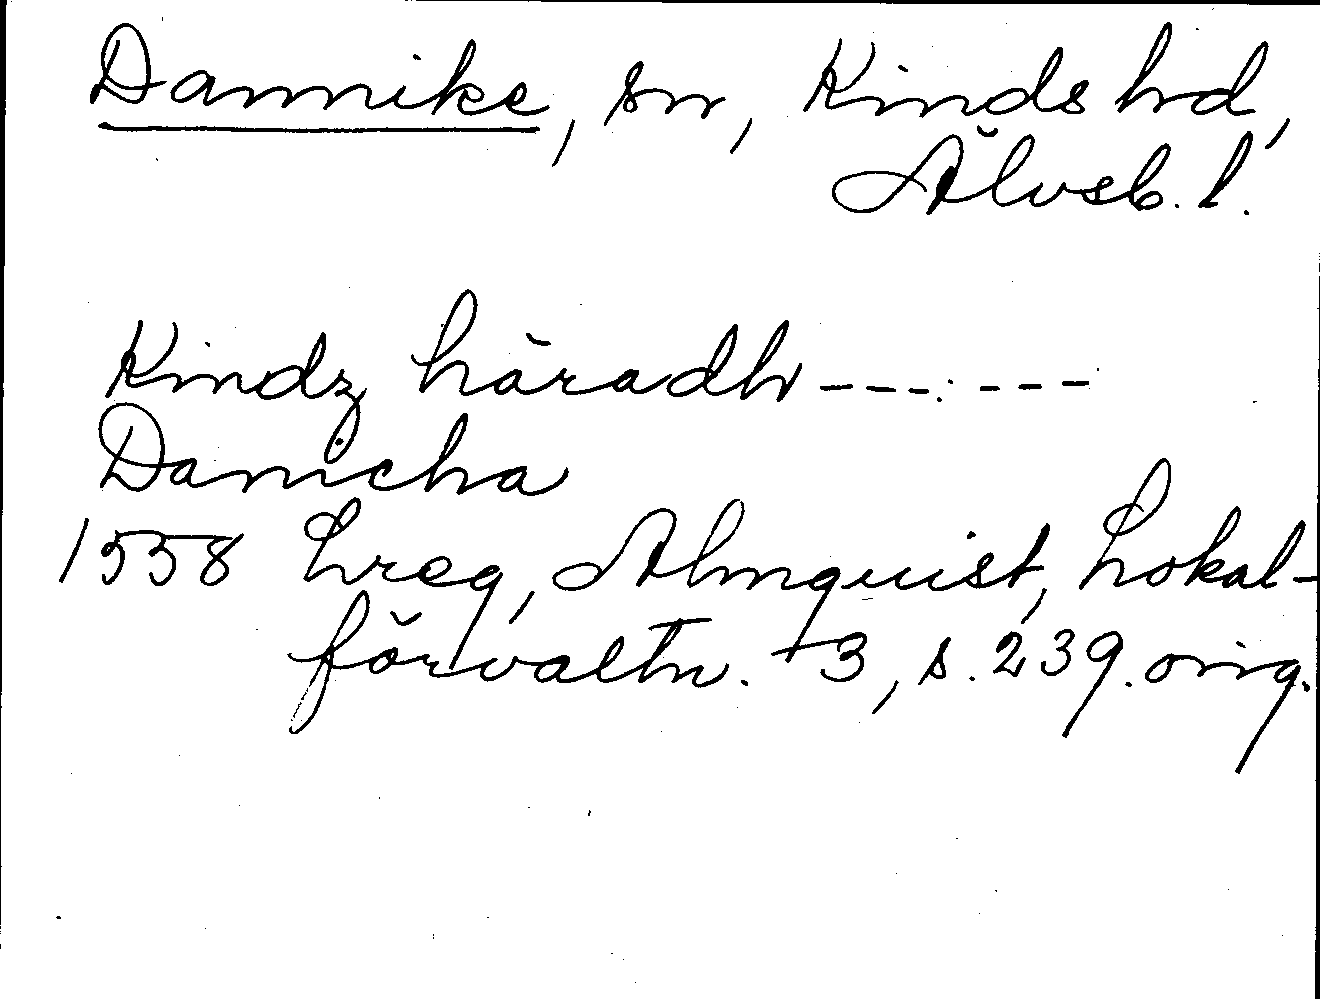 Dannike, sn, Kinds hrd,
Älvsb. l.
Kindz häradh ---:---
Danicha
1558 Lreg, Almquist, Lokal-
förvaltn. 3, s. 239. orig.